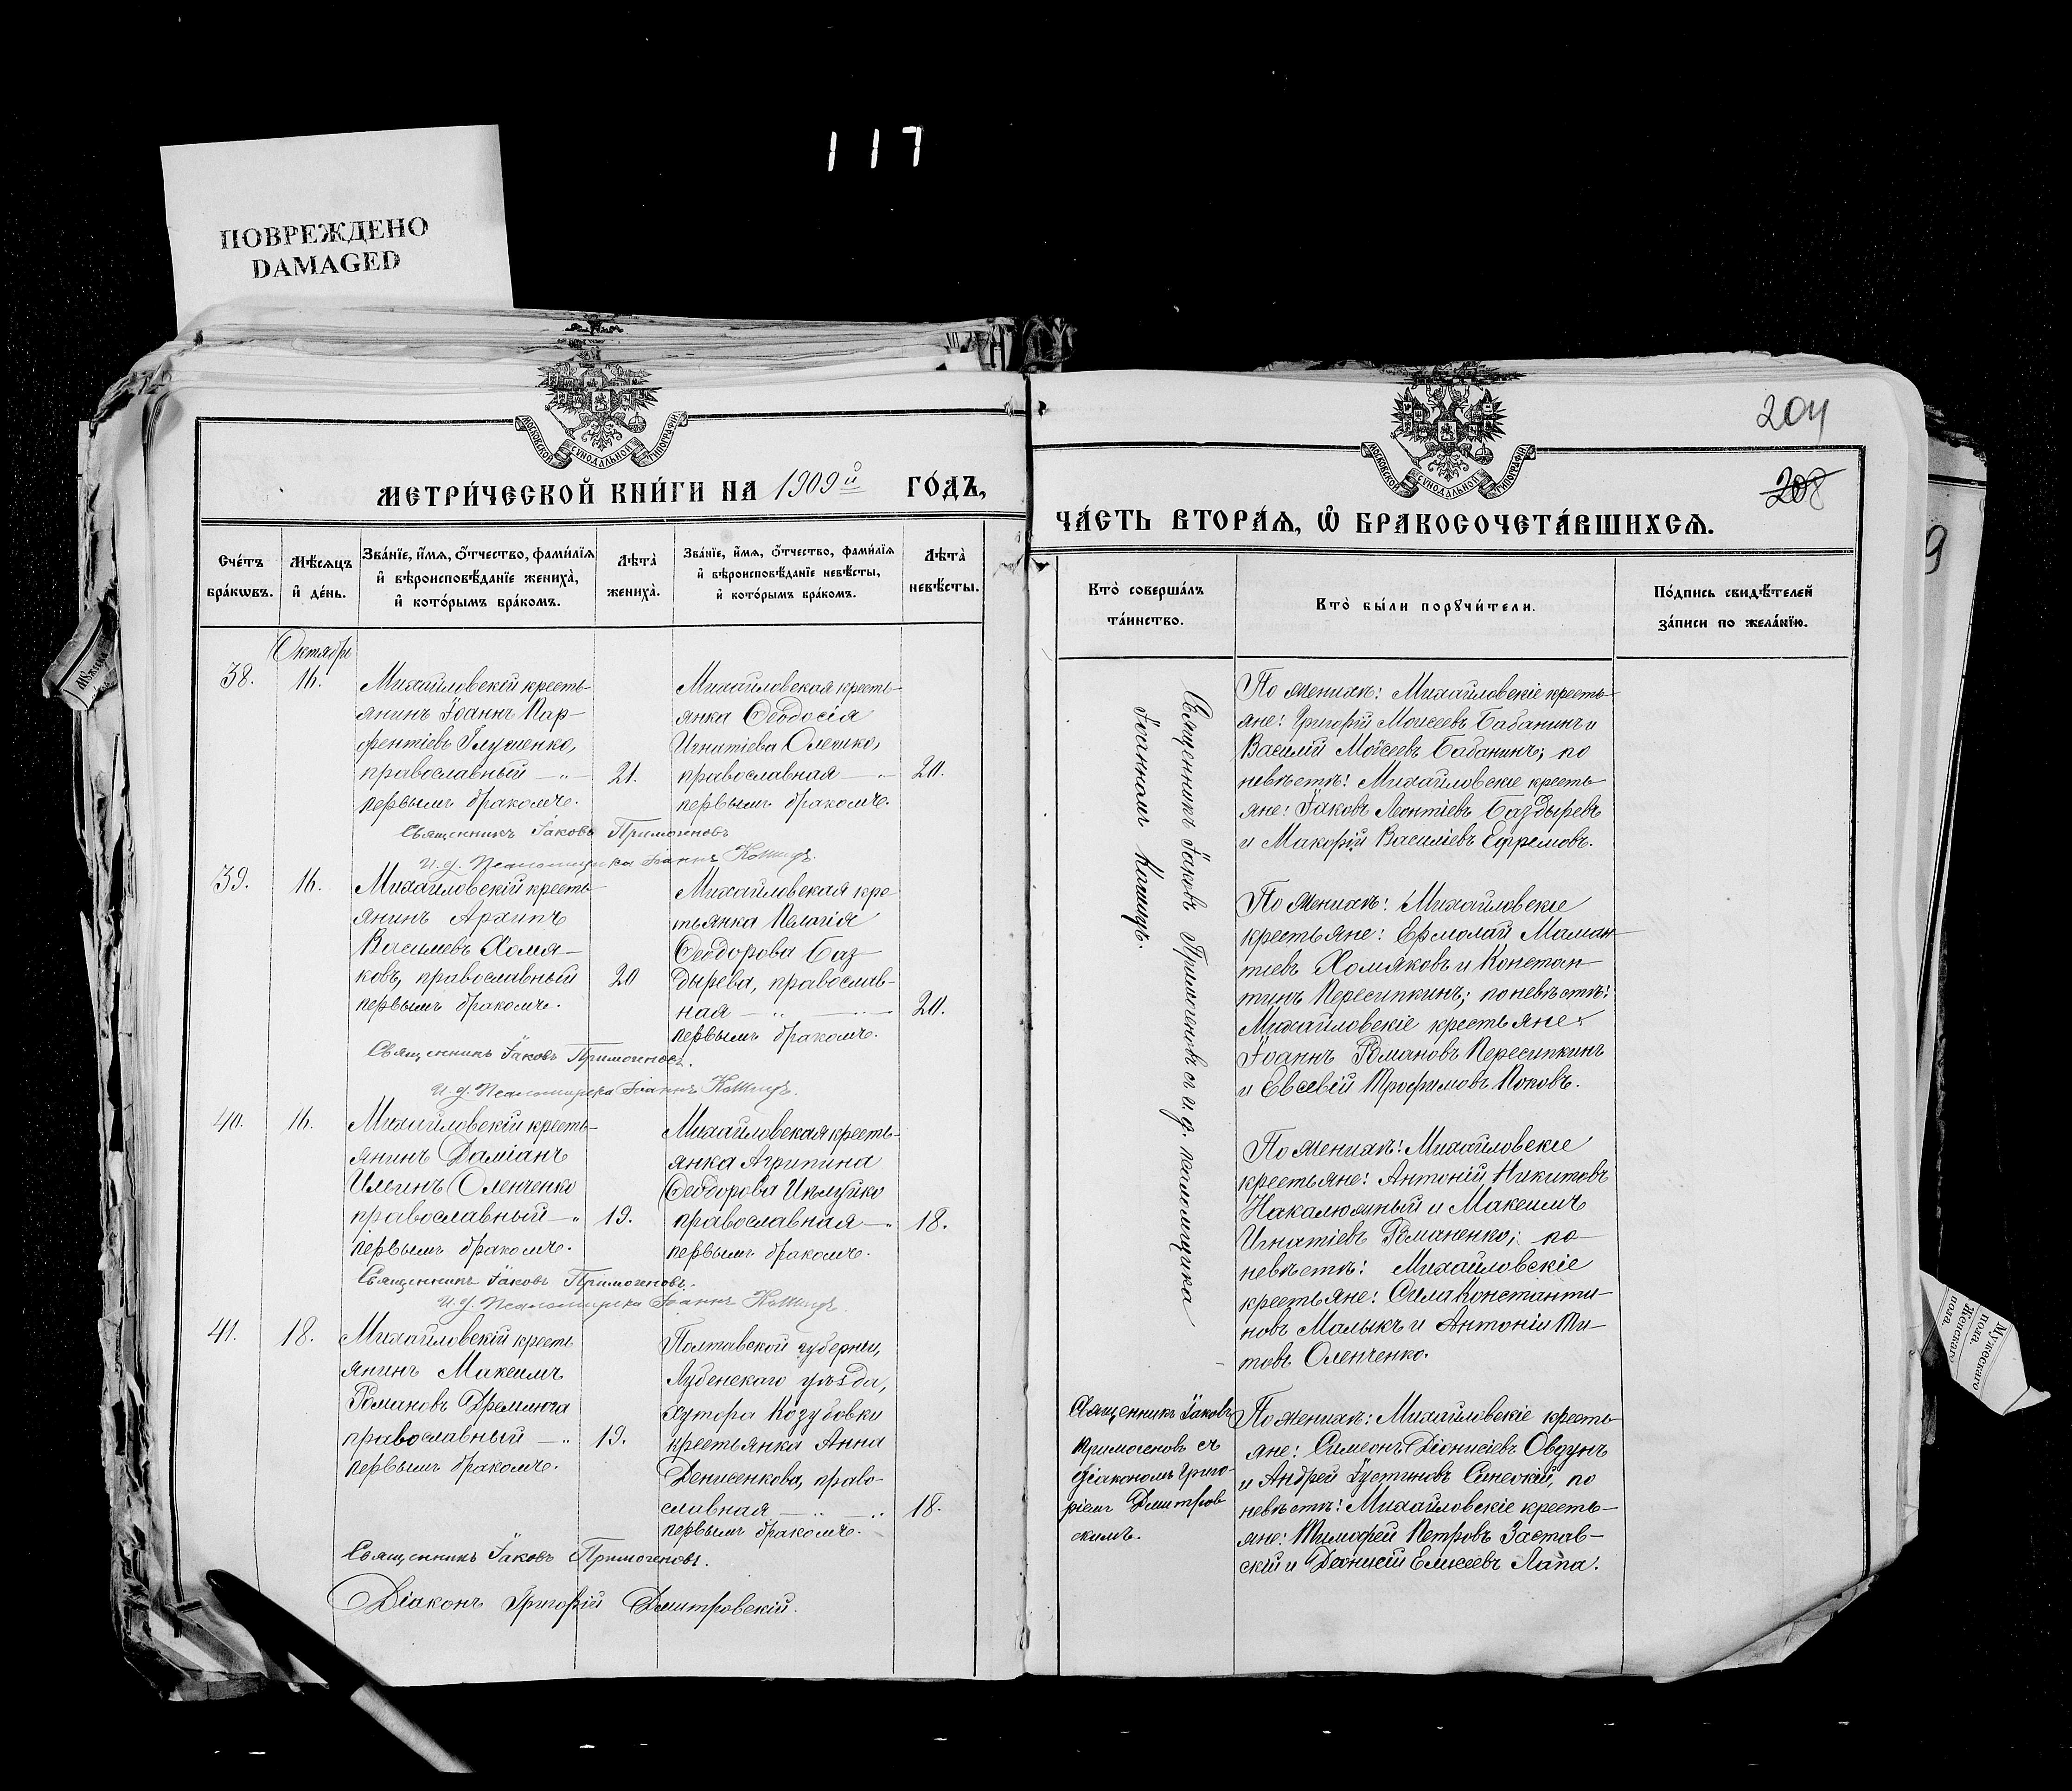 117
ПОВРЕЖДЕНО
DAMAGED
МОСКОВСКОЙ СѴНОДАЛЬНОЙ ТИПОГРАФІИ
МЕТРИ́ЧЕСКОЙ КНИ́ГИ НА 1909й ГО́ДЪ,
Сче́тъ бра́кѡвъ.
Мѣ́сяцъ и҆ де́нь.
Зва́нїе, и҆́мя, ѻ҆́тчество, фами́лїя
и҆ вѣроисповѣ́данїе жениха̀,
и҆ кото́рымъ бра́комъ.
Лѣта̀ жениха̀.
Зва́нїе, и҆́мя, ѻ҆́тчество, фами́лїя
и҆ вѣроисповѣ́данїе невѣ́сты,
и҆ кото́рымъ бра́комъ.
Лѣта̀ невѣ́сты.
Октябрь
38.
16.
Михайловскій кресть-
янинъ Іоаннъ Пар-
фентіевъ Глущенко,
православный — 21.
первымъ бракомъ.
Михайловская кресть-
янка Ѳеодосія
Игнатіева Олешко,
православная — 20.
первымъ бракомъ.
Священникъ Іаковъ Примогеновъ
И. д. Псаломщика Іоаннъ Кошицъ.
39.
16.
Михайловскій кресть-
янинъ Архипъ
Василіевъ Хомя-
ковъ, православный 20
первымъ бракомъ.
Михайловская кре-
тьянка Пелагія
Ѳеодорова Баз-
дырева, православ-
ная — 20.
первымъ бракомъ.
Священникъ Іаковъ Примогеновъ.
И. д. Псаломщика Іоаннъ Кошицъ.
40.
16.
Михайловскій кресть-
янинъ Даміанъ
Илiинъ Оленченко
православный — 19.
первымъ бракомъ.
Михайловская кресть-
янка Агрипина
Ѳеодорова Цѣлуйко
православная — 18.
первымъ бракомъ.
Священникъ Іаковъ Примогеновъ.
И. д. Псаломщика Іоаннъ Кошицъ.
41.
18.
Михайловскій кресть
янинъ Максимъ
Романовъ Дремлюга
православный — 19.
первымъ бракомъ.
Полтавской губерніи,
Лубенскаго уѣзда,
хутора Козубовки
крестьянка Анна
Денисенкова, право-
славная — 18.
первымъ бракомъ.
Священникъ Іаковъ Примогеновъ.
Діаконъ Григорій Дмитровскій.
МОСКОВСКОЙ СѴНОДАЛЬНОЙ ТИПОГРАФІИ
204
208
ЧА́СТЬ ВТОРА́Я, Ѽ БРАКОСОЧЕТА́ВШИХСЯ.
Кто̀ соверша́лъ
та́инство.
Кто̀ бы́ли порꙋчи́тели.
По́дпись свидѣ́телей
за́писи по жела́нїю.
Священникъ Іаковъ Примогеновъ съ и. д. псаломщика
Іоанномъ Кошицъ.
По женихѣ: Михайловскіе кресть-
яне: Григорій Моисеевъ Бабанинъ и
Василій Моѵсеевъ Бабанинъ; по
невѣстѣ: Михайловскіе кресть-
яне: Іаковъ Леонтіевъ Баздыревъ
и Макарій Василіевъ Ефремовъ.
По женихѣ: Михайловскіе
крестьяне: Ермолай Маман-
тіевъ Хомяковъ и Констан-
тинъ Пересипкинъ; по невѣстѣ:
Михайловскіе крестьяне:
Іоаннъ Романовъ Пересипкинъ
и Евсевій Трофимовъ Поповъ.
По женихѣ: Михайловскіе
крестьяне: Антоній Никитовъ
Накалюжный и Максимъ
Игнатіевъ Романенко; по
невѣстѣ: Михайловскіе
крестьяне: Сила Константи-
новъ Малыкъ и Антоній Ти-
товъ Оленченко.
Священникъ Іаковъ
Примогеновъ съ
діакономъ Григо-
ріемъ Дмитров-
скимъ.
По женихѣ: Михайловскіе кресть-
яне: Симеонъ Діонисіевъ Овдунъ
и Андрей Іустиновъ Синескій, по
невѣстѣ: Михайловскіе кресть-
яне: Тимофей Петровъ Застав-
скій и Діонисій Елисеевъ Лапа.
9
Мужескаго
пола.
Женскаго
пола.